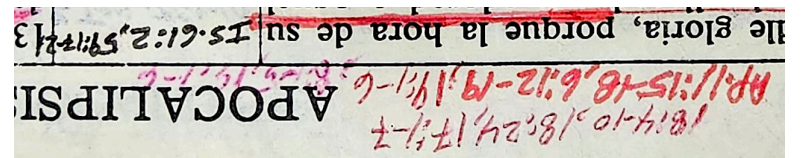 18:4-10, 18:24, 17:1-7
Ap. 11:15-18, 6:12-17, 14:1-6 APOCALIPSIS
dle gloria, porque la hora de su Is. 61:2, 59:17-21 3